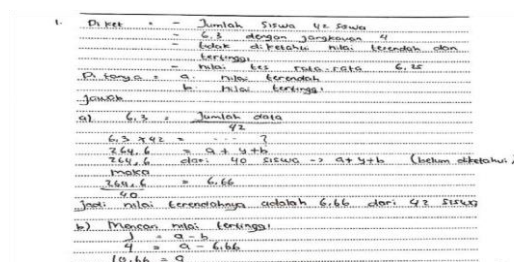 1. Diket : - Jumlah siswa 42 siswa
- 6,3 dengan jangkauan 4
- tidak diketahui nilai terendah dan
tertinggi
- nilai tes rata-rata 6,25
Ditanya = a. nilai terendah
b. nilai tertinggi
Jawab
a) 6,3 = Jumlah data
42
6,3 x 42 = ... ?
264,6 = a + y + b
264,6 dari 40 siswa -> a + y + b (belum diketahui)
maka
264,6 = 6,66
40
Jadi nilai terendahnya adalah 6,66 dari 42 siswa
b) Mencari nilai tertinggi
J = a - b
4 = a - 6,66
10,66 = a